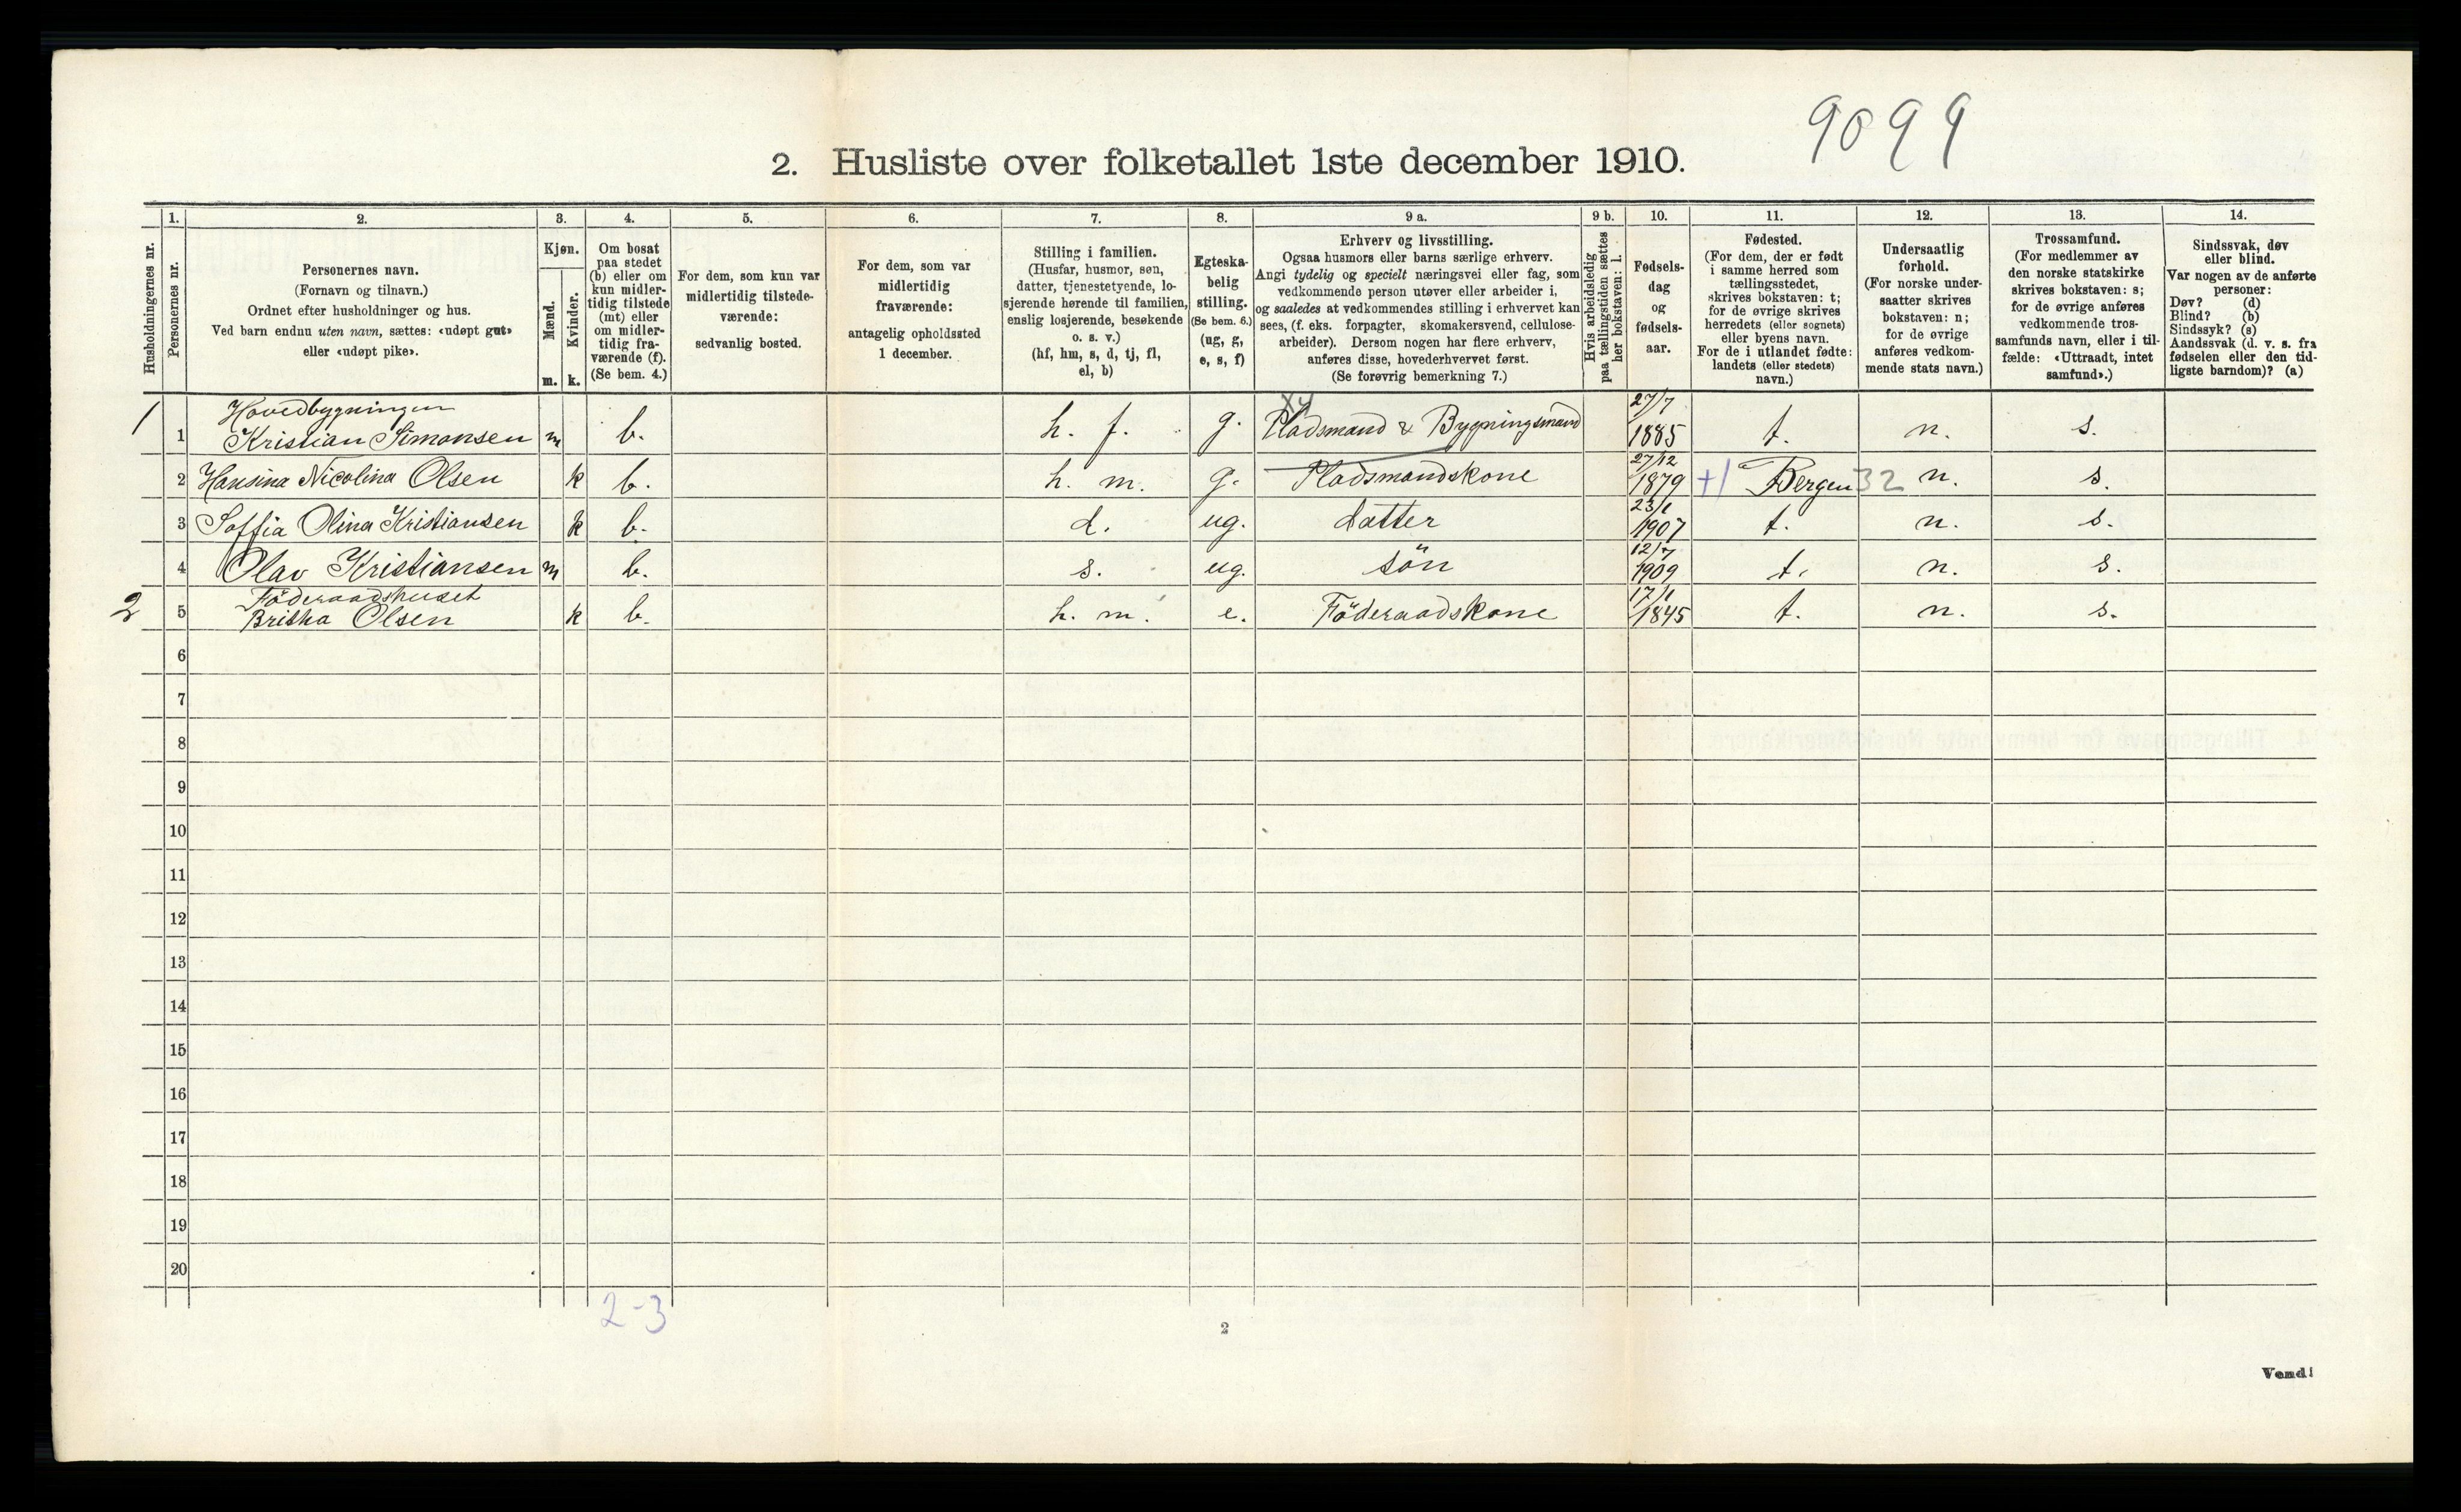 9099
2. Husliste over folketallet 1ste december 1910.
1. 2. 3. 4. 5. 6. 7. 8. 9 a. 9 b. 10. 11. 12. 13. 14.
Husholdningernes nr.
Personernes nr.
Personernes navn.
(Fornavn og tilnavn.)
Ordnet efter husholdninger og hus.
Ved barn endnu uten navn, sættes: «udøpt gut»
eller «udøpt pike».
Kjøn.
Mænd.
m.
Kvinder.
k.
Om bosat
paa stedet
(b) eller om
kun midler-
tidig tilstede
(mt) eller
om midler-
tidig fra-
værende (f).
(Se bem. 4.)
For dem, som kun var
midlertidig tilstede-
værende:
sedvanlig bosted.
For dem, som var
midlertidig
fraværende:
antagelig opholdssted
1 december.
Stilling i familien.
(Husfar, husmor, søn,
datter, tjenestetyende, lo-
sjerende hørende til familien,
enslig losjerende, besøkende
o. s. v.)
(hf, hm, s, d, tj, fl,
el, b)
Egteska-
belig
stilling.
(Se bem. 6.)
(ug, g,
e, s, f)
Erhverv og livsstilling.
Ogsaa husmors eller barns særlige erhverv.
Angi tydelig og specielt næringsvei eller fag, som
vedkommende person utøver eller arbeider i,
og saaledes at vedkommendes stilling i erhvervet kan
sees, (f. eks. forpagter, skomakersvend, cellulose-
arbeider). Dersom nogen har flere erhverv,
anføres disse, hovederhvervet først.
(Se forøvrig bemerkning 7.)
Hvis arbeidsledig
paa tællingstiden sættes
her bokstaven: l.
Fødsels-
dag
og
fødsels-
aar.
Fødested.
(For dem, der er født
i samme herred som
tællingsstedet,
skrives bokstaven: t;
for de øvrige skrives
herredets (eller sognets)
eller byens navn.
For de i utlandet fødte:
landets (eller stedets)
navn.)
Undersaatlig
forhold.
(For norske under-
saatter skrives
bokstaven: n;
for de øvrige
anføres vedkom-
mende stats navn.)
Trossamfund.
(For medlemmer av
den norske statskirke
skrives bokstaven: s;
for de øvrige anføres
vedkommende tros-
samfunds navn, eller i til-
fælde: «Uttraadt, intet
samfund».)
Sindssvak, døv
eller blind.
Var nogen av de anførte
personer:
Døv? (d)
Blind? (b)
Sindssyk? (s)
Aandssvak (d. v. s. fra
fødselen eller den tid-
ligste barndom)? (a)
Hovedbygningen
1 1 Kristian Simonsen m b. h. f. g. Pladsmand & Bygningsmand 27/7 1885 t. n. s.
2 Hansina Nicolina Olsen k b. h. m. g. Pladsmandskone 27/12 1879 +1 Bergen 32 n. s.
3 Soffia Olina Kristiansen k b. d. ug. datter 23/1 1907 t. n. s.
4 Olav Kristiansen m b. s. ug. sön 12/7 1909 t. n. s.
Föderaadshuset
2 5 Britha Olsen k b. h. m. e. Föderaadskone 17/1 1845 t. n. s.
6
7
8
9
10
11
12
13
14
15
16
17
18
19
20
2-3
2
Vend!